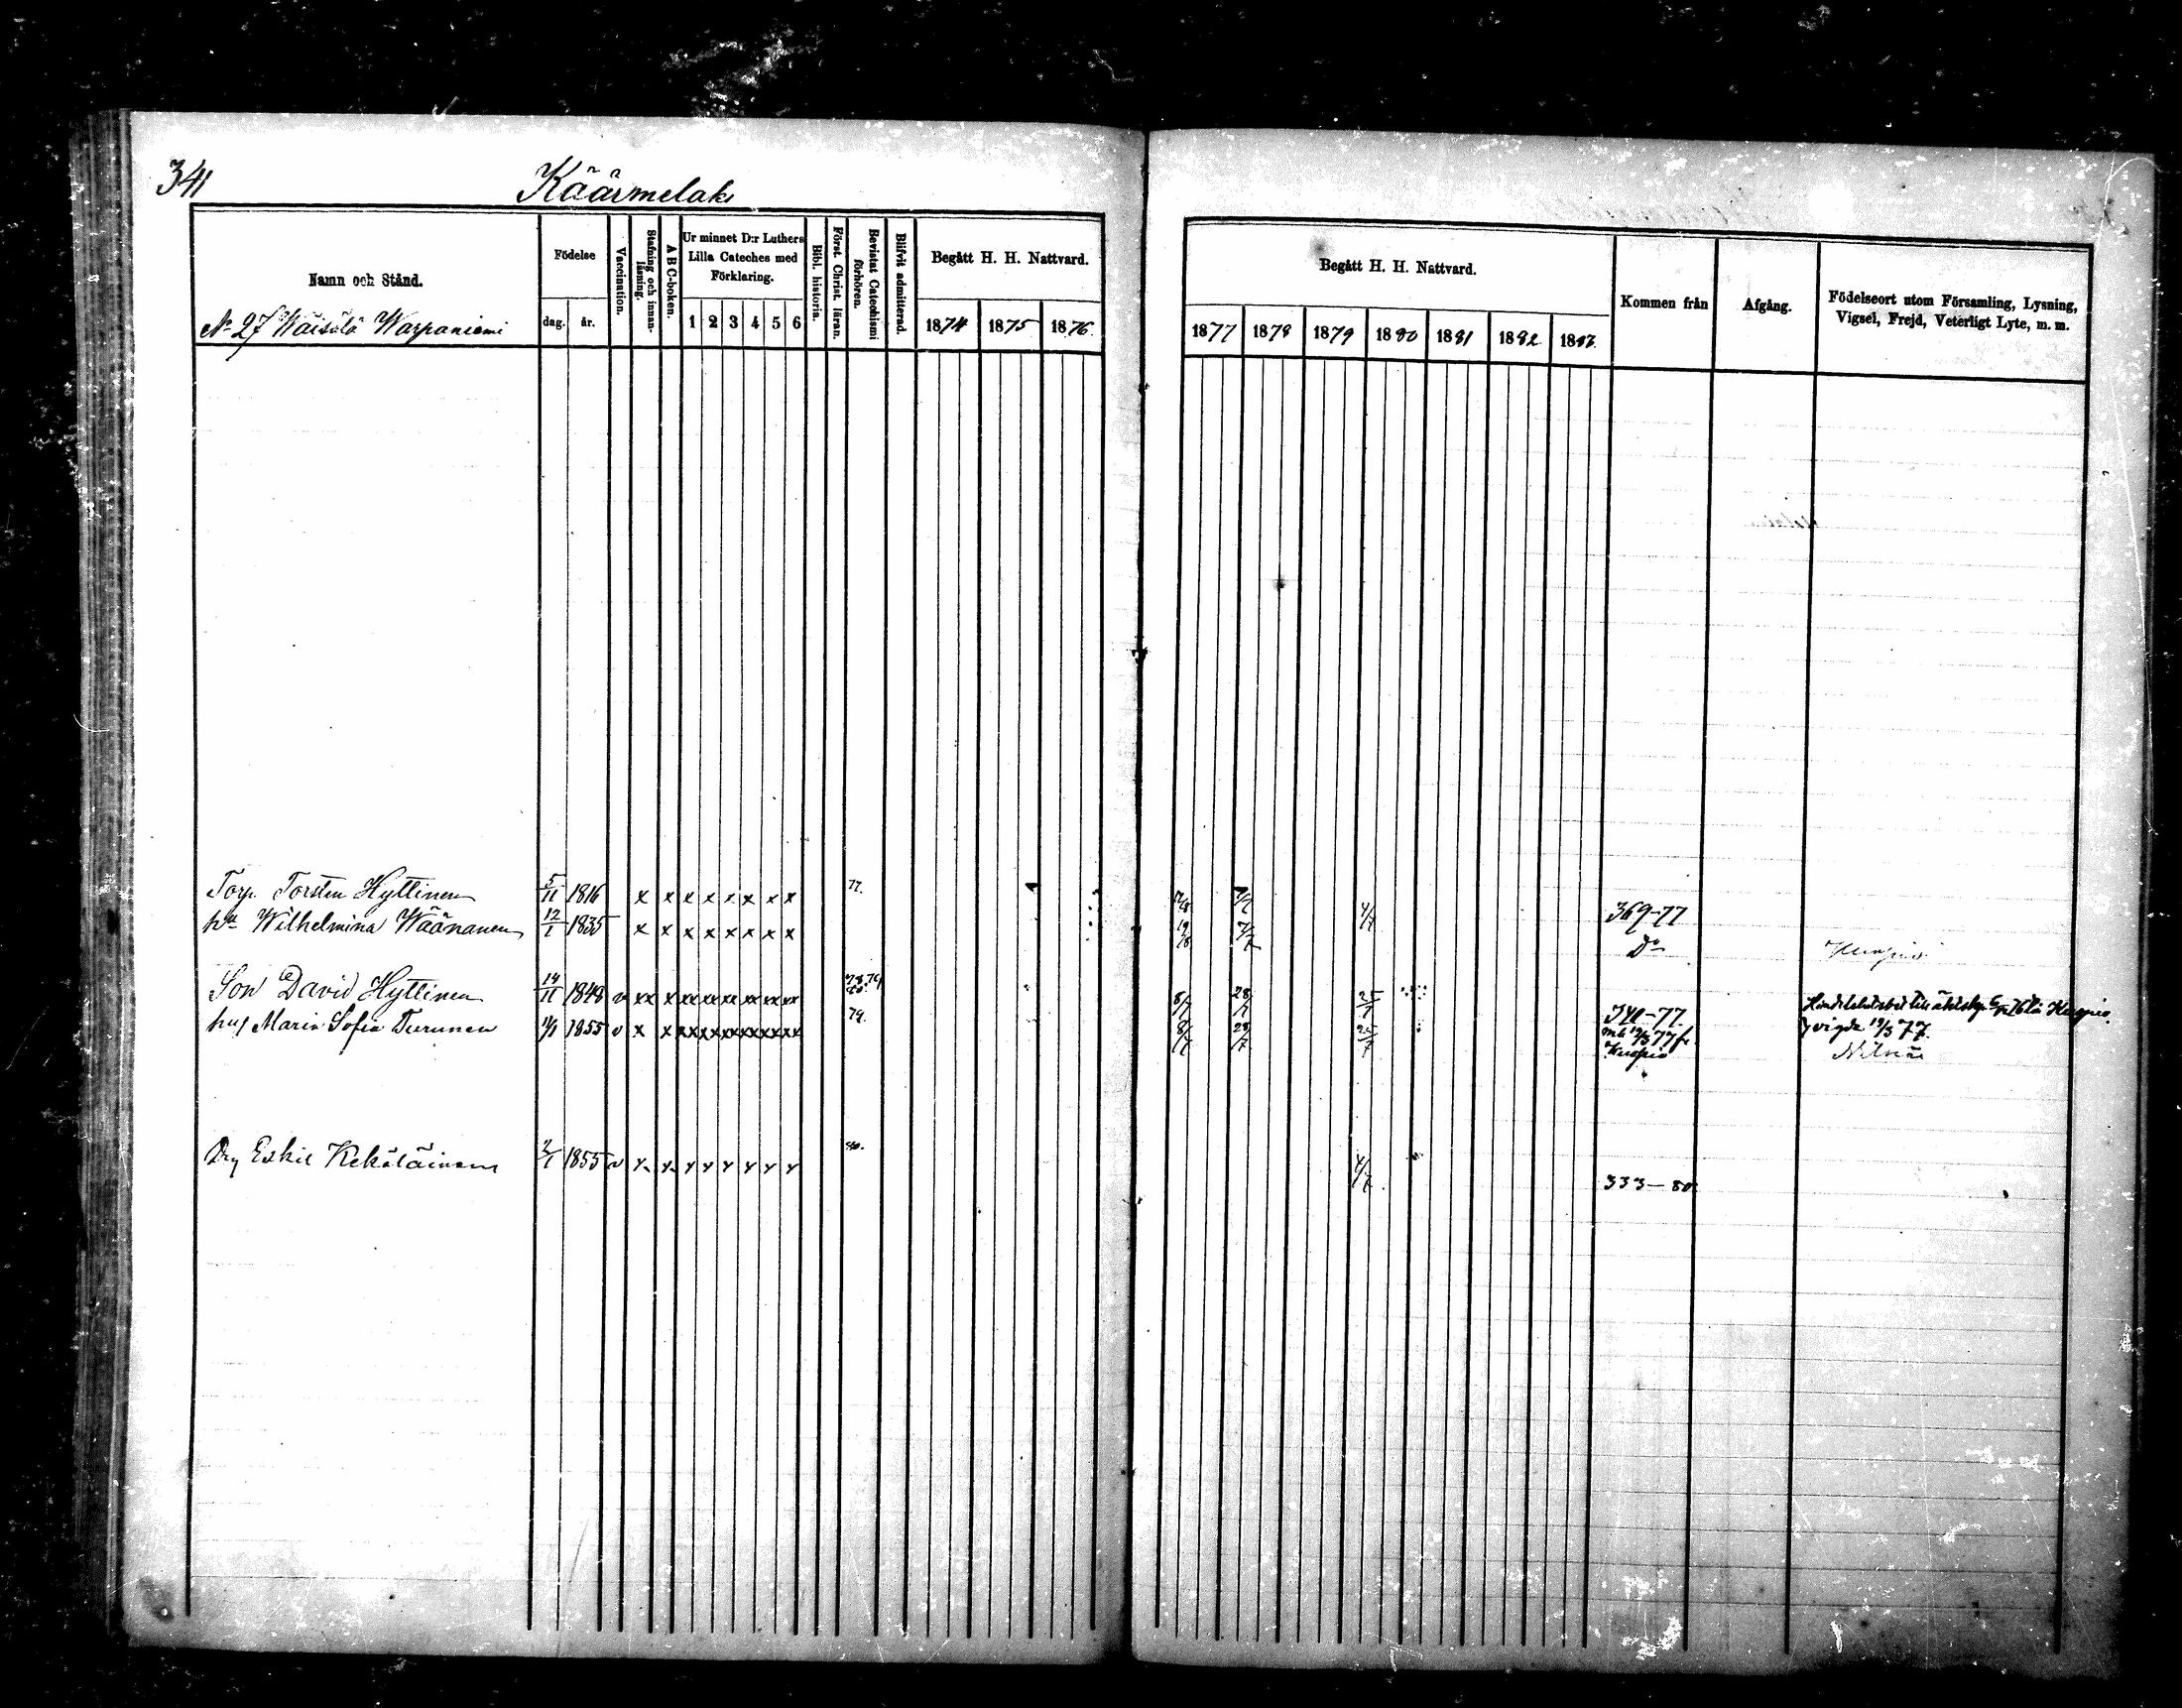 341
Käärmelaks
Namn och Stånd.
No 27 Wäisölä Warpaniemi
Födelse
dag.
år.
Vaccination.
Stafning och innanläsning.
A B C-boken.
Ur minnet D:r Luthers
Lilla Cateches med
Förklaring.
1 2 3 4 5 6
Bibl. historia.
Först. Christ. läran.
Bevistat Catechismi
förhören.
Blifvit admitterad.
Begått H. H. Nattvard.
1874 1875 1876.
Begått H. H. Nattvard.
1877 1878 1879 1880 1881 1882 1887
Kommen från
Afgång.
Födelseort utom Församling, Lysning,
Vigsel, Frejd, Veterligt Lyte, m. m.
Torp. Torsten Hyttinen 5/11 1816 x x x x x x x x 77. 369-77
hu Wilhelmina Wäänanen 12/1 1835 x x x x x x x x 4/7 Do Kuopio
Son David Hyttinen 14/11 1848 v xx xx xx xx xx xx xx xx 8/7 28/7 25/7 340-77
hu Maria Sofia Turunen 1855 v x x xx xx xx xx xx xx 79. 8/7 28/7 25/7 77 fr. Kuopio
vigde 19/3 77.
Nilsiä
Drg Eskil Kekäläinen 2/1 1855 v x x x x x x x x 80. 4/7 333-80